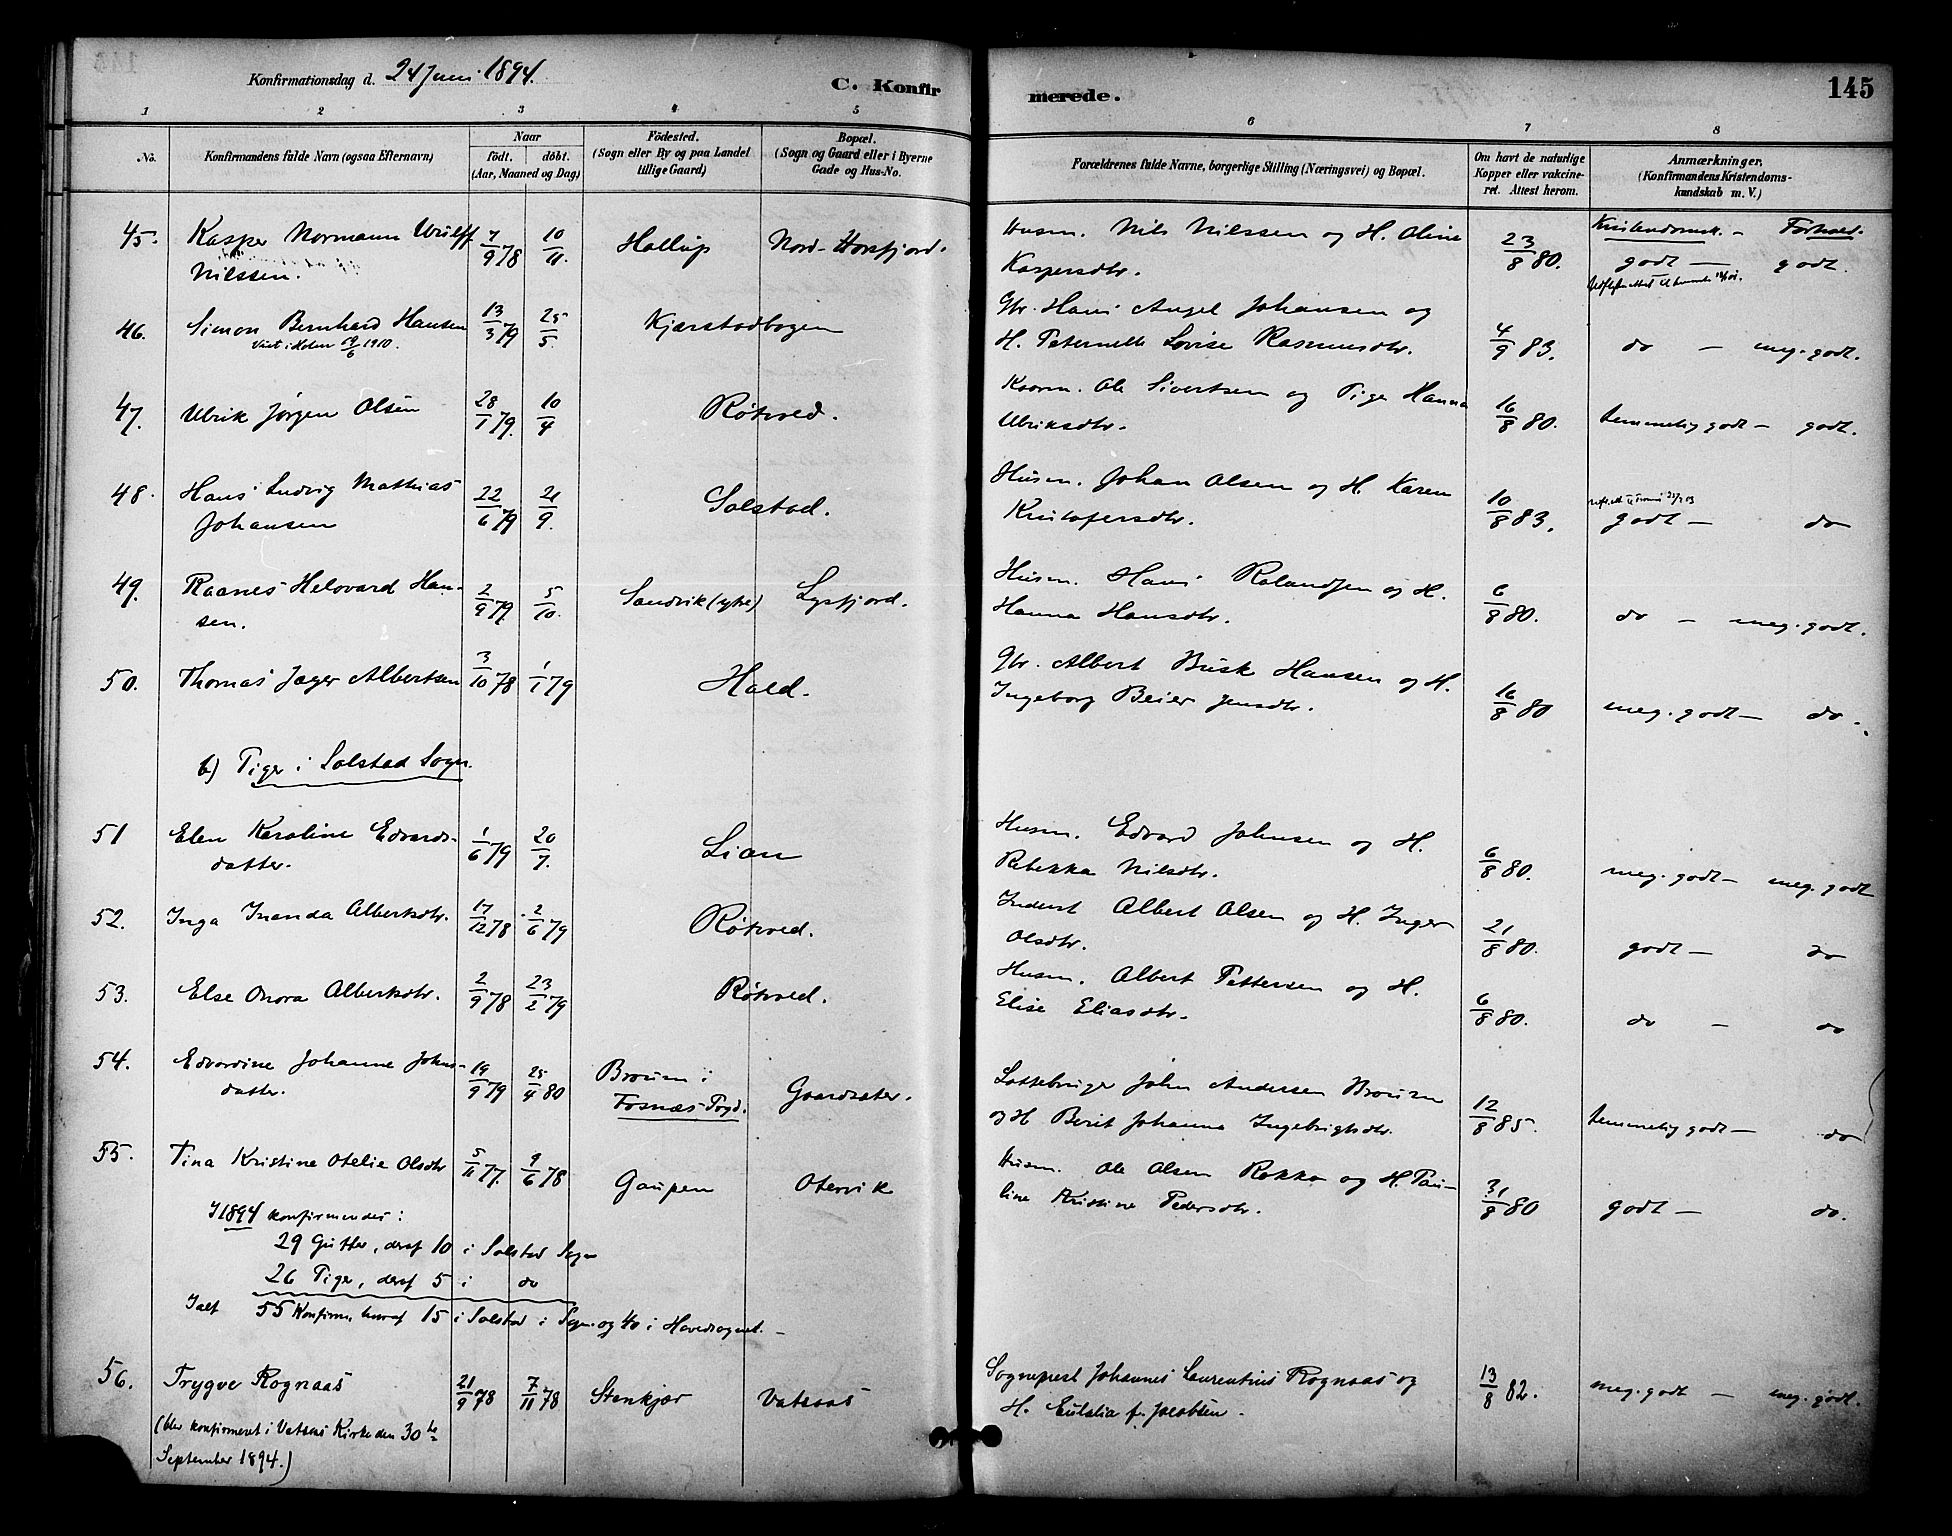 Konfirmationsdag d. 24 Juni 1894.
C. Konfirmerede.
145
1 2 3 4 5 6 7 8
No.
Konfirmandens fulde Navn (ogsaa Efternavn)
Naar
födt. döbt.
(Aar, Maaned og Dag)
Födested.
(Sogn eller By og paa Landet
tillige Gaard)
Bopæl.
(Sogn og Gaard eller i Byerne
Gade og Hus-No.
Forældrenes fulde Navne, borgerlige Stilling (Næringsvei) og Bopæl.
Om havt de naturlige
Kopper eller vakcine-
ret. Attest herom.
Anmærkninger,
(Konfirmandens Kristendoms-
kundskab m. V.)
Kristendomsk. – Forhold.
45. Kasper Normann Wulff 7/9 78 10/11. Hallup Nord-Horsfjord. Husm. Nils Nilssen og H. Oline 23/8 80. godt – godt.
Nilssen. Kaspersdtr.
46. Simon Bernhard Hansen 13/3 79 25/5. Kjærstadbogen Gbr. Hans Angel Johansen og
Viet i Holen 19/6 1910. H. Peternelle Lovise Rasmusdtr. 4/9 83. do – meg. godt.
47. Ulrik Jørgen Olsen 28/1 79. 10/4 Røtved. Kaarm. Ole Sivertsen og Pige Hanna 16/8 80. temmelig godt – godt.
Ulriksdtr.
48. Hans Ludvig Mathias 22/6 79 21/9. Solstad. Husm. Johan Olsen og H. Karen 10/8 83. godt – do
Johansen Kristofersdtr.
49. Raanes Helovard Han- 2/9 79 5/10. Sandvik (ytre) Lysfjord. Husm. Hans Rolandsen og H. 6/8 80. do – meg. godt.
sen. Hanna Hansdtr.
50. Thomas Jæger Albertsen 3/10 78 1/1 79 Hald. Gbr. Albert Busk Hansen og H.
Ingeborg Beier Jensdtr. 16/8 80 meg. godt – do.
b) Piger i Solstad Sogn.
51 Elen Karoline Edvards- 1/6 79 20/7. Lian Husm. Edvard Johnsen og H.
datter. Rebekka Nilsdtr. 6/8 80. meg. godt – meg. godt
52. Inga Inanda Albertsdtr. 17/12 78 2/6 79 Røtved. Inderst Albert Olsen og H. Inger
Olsdtr. 21/8 80. godt – do
53. Else Onora Albertsdtr. 2/9 78 23/2 79 Røtved. Husm. Albert Pettersen og H.
Elise Eliasdtr. 6/8 80. do – do
54. Edvardine Johanne Johns- 19/9 79 25/4 80 Brøum i Gaardsæter. Lottebruger John Andersen Brøum
datter. Fosnæs Pgd. og H Berit Johanna Ingebrigtsdtr. 12/8 85. temmelig godt – do
55. Tina Kristine Otelie Olsdtr 5/11 77. 9/6 78 Gaupen Otervik Husm. Ole Olsen Rokka og H. Pau-
line Kristine Pedersdtr. 31/8 80 godt – do.
I 1894 konfirmendes:
29 Gutter, deraf 10 i Solstad Sogn
26 Piger, deraf 5 i do
Ialt 55 Konfirm. hvoraf 15 i Solstad i Sogn og 40 i Hovedsognet. –
56. Trygve Rognaas 21/9 78 7/11 78 Stenkjær Vatsaas Sognepræst Johannes Laurentius Rognaas og 13/8 82. meg. godt – meg. godt.
H. Eulalia f. Jacobsen.
(blev konfirmeret i Vatsaas Kirke den 30te
September 1894.)